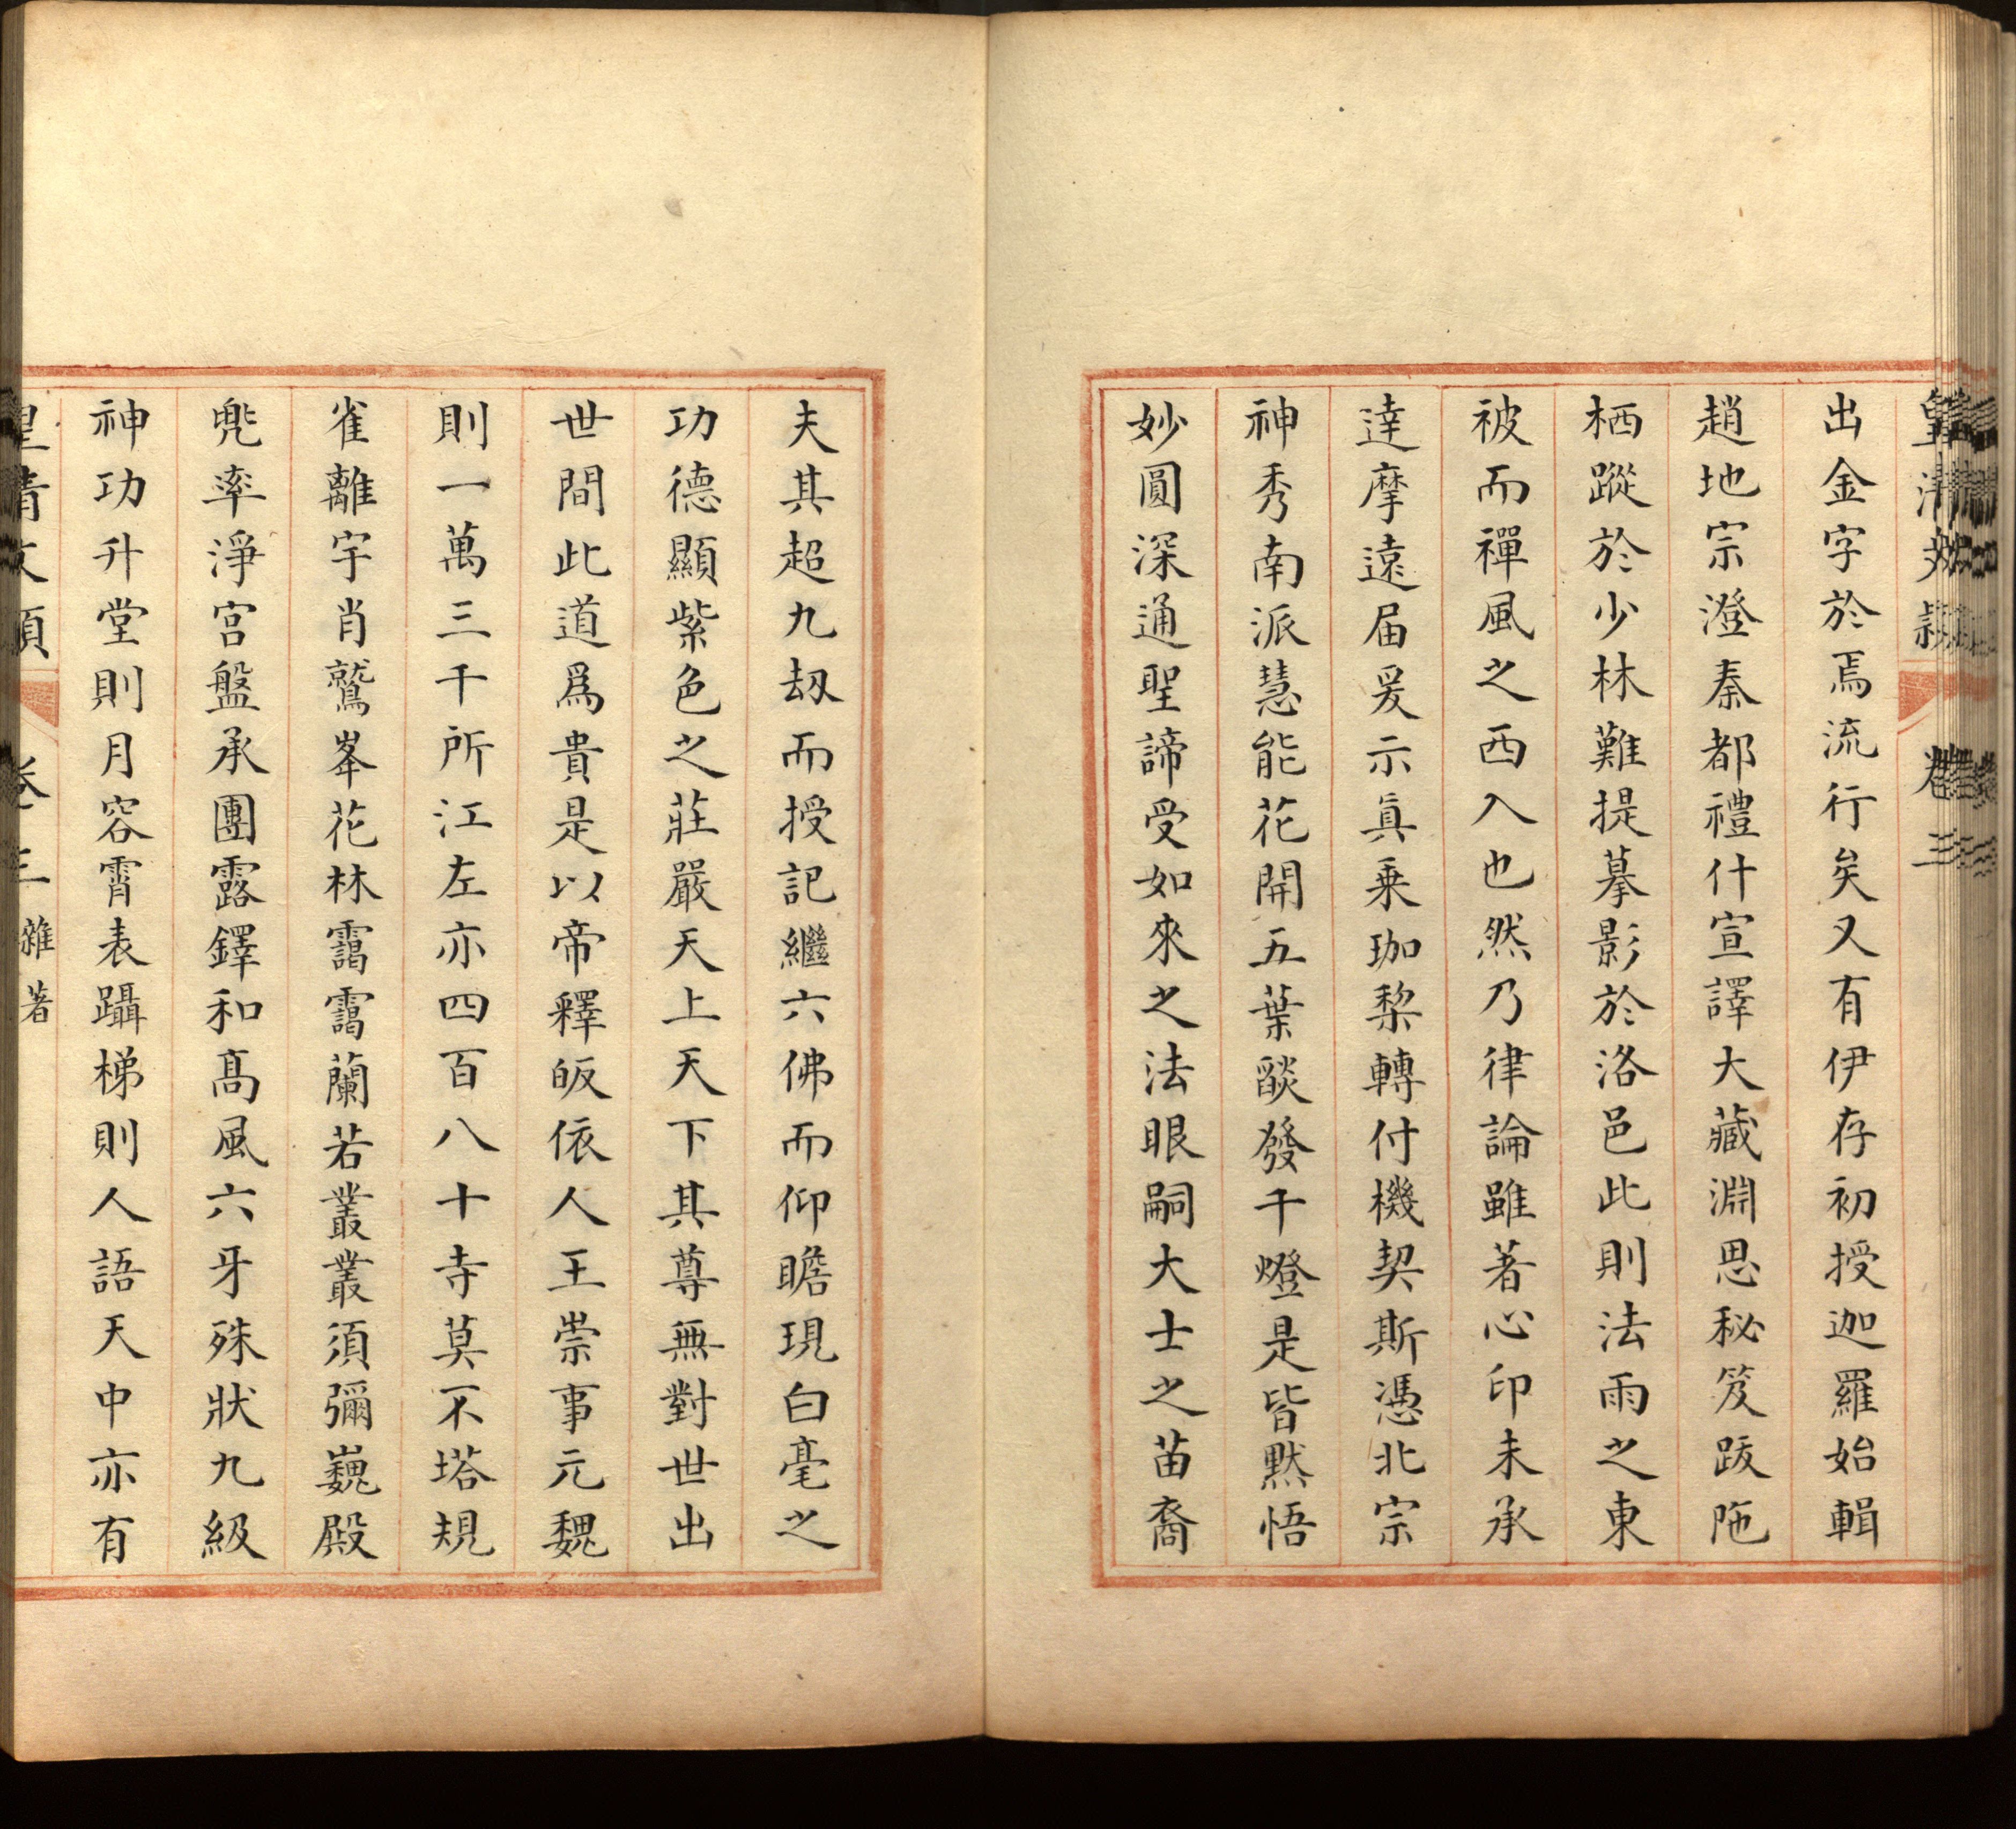 皇清文穎
卷三
出金字於焉流行矣又有伊存初授迦羅始輯
趙地宗澄秦都禮什宣譯大藏淵思秘笈跋陁
栖蹤於少林難提摹影於洛邑此則法雨之東
被而禪風之西入也然乃律論雖著心印未承
達摩遠届爰示眞乗珈棃轉付機契斯憑北宗
神秀南派慧能花開五葉燄發千燈是皆默悟
妙圓深通聖諦受如來之法眼嗣大士之苗裔
夫其超九刼而授記繼六佛而仰瞻現白毫之
功德顯紫色之莊嚴天上天下其尊無對世出
世間此道爲貴是以帝釋皈依人王崇事元魏
則一萬三千所江左亦四百八十寺莫不塔規
雀離宇肖鷲峯花林靄靄蘭若叢叢須彌巍殿
兠率淨宫盤承團露鐸和髙風六牙殊狀九級
神功升堂則月容霄表躡梯則人語天中亦有
皇清文穎
卷三 雜著